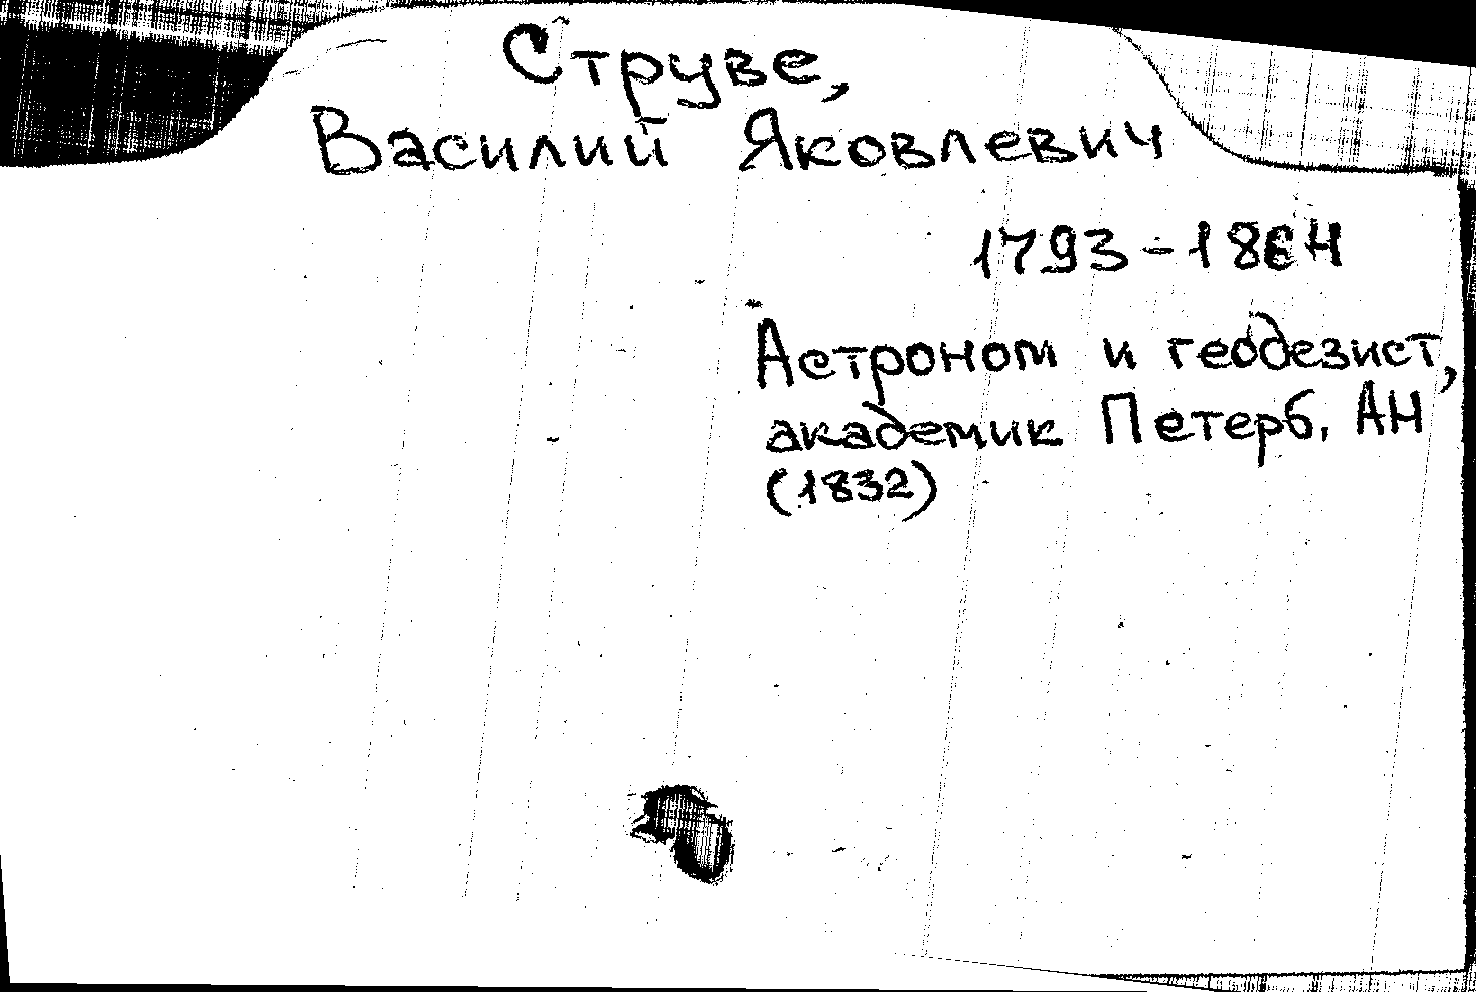 Струве,
Василий Яковлевич
1793-1864
Астроном и геодезист,
академик Петерб. АН
(1832)